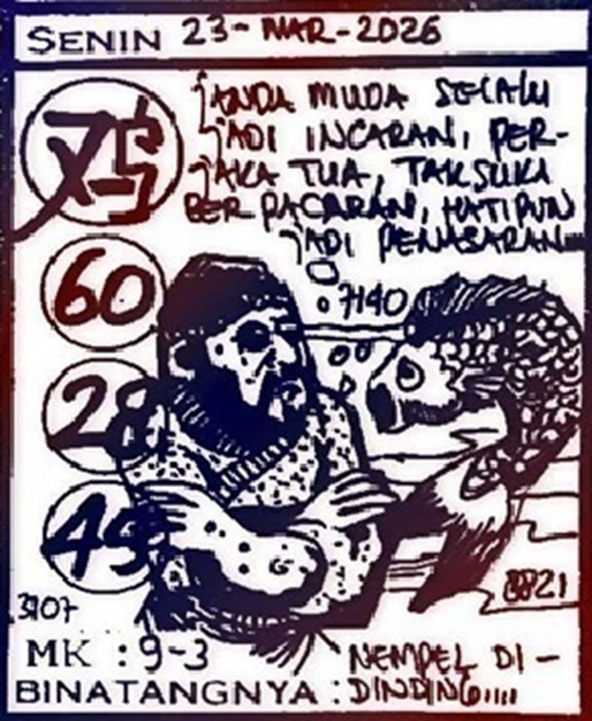 SENIN 23-MAR-2026
JANDA MUDA SELALU
JADI INCARAN, PER-
JAKA TUA, TAK SUKA
BER PACARAN, HATIPUN
JADI PENASARAN....
60
7140
28
8821
MK : 9-3
NEMPEL DI-
BINATANGNYA : DINDING,,,,